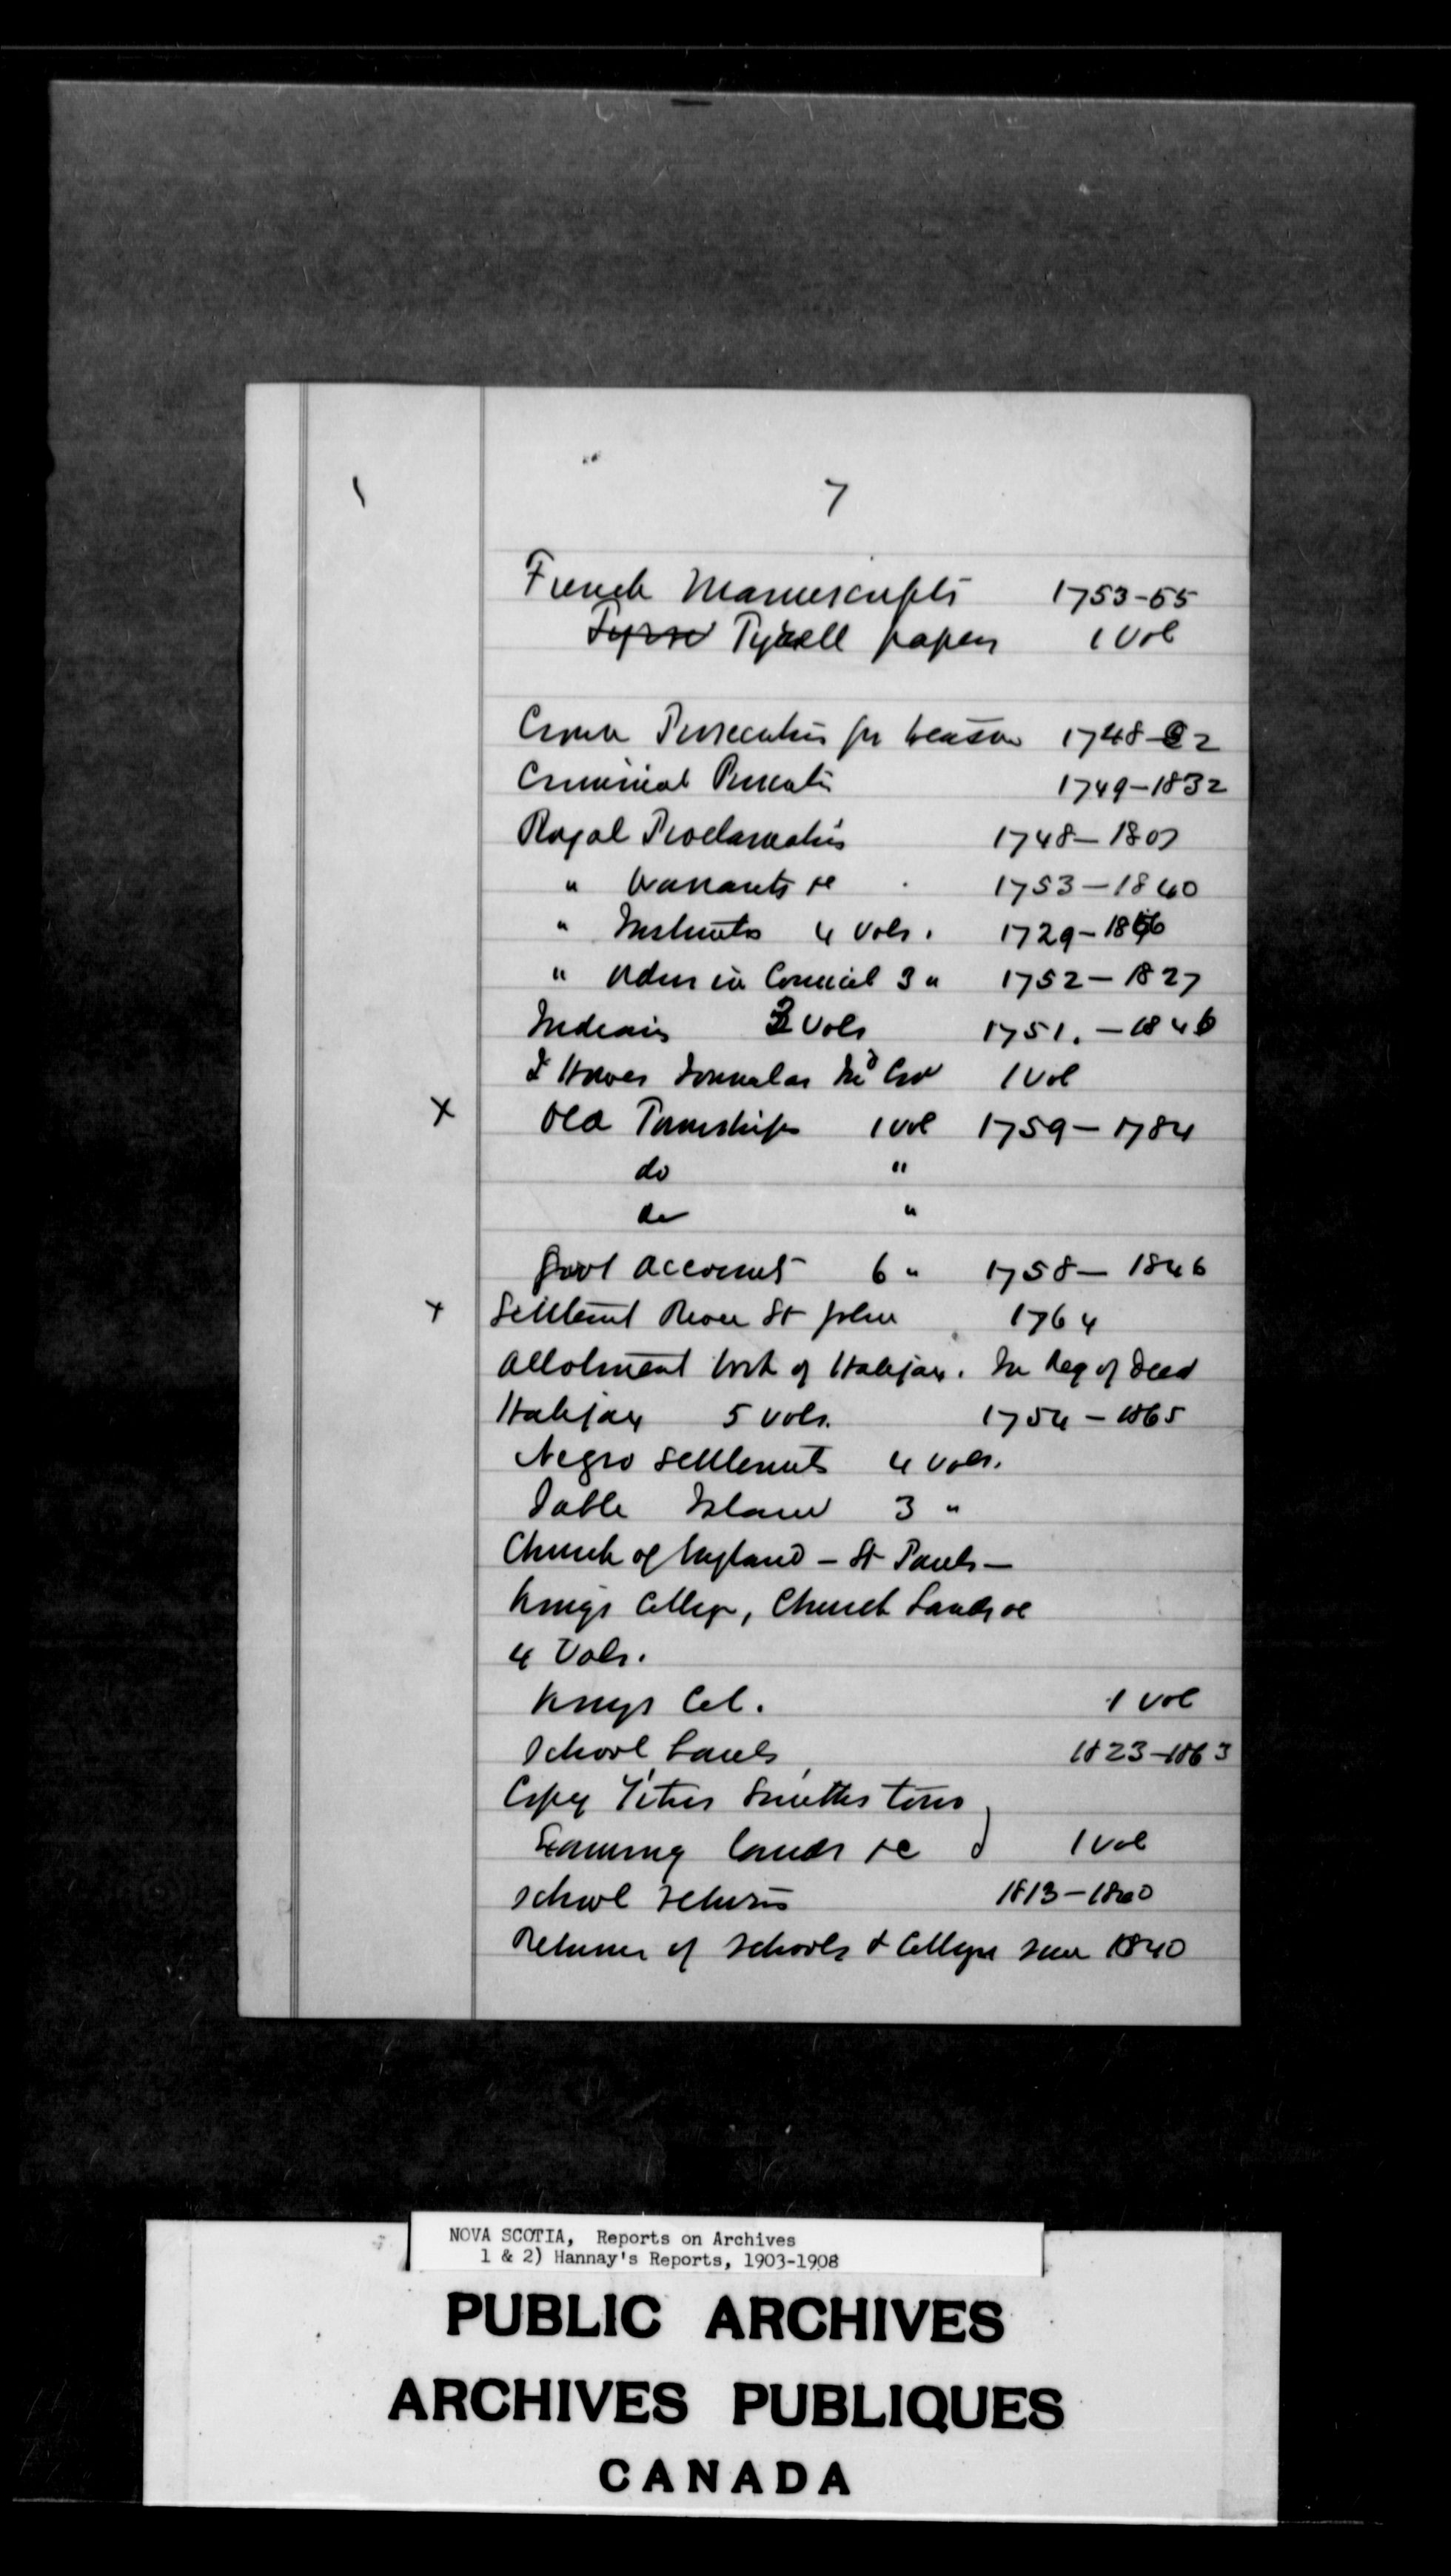 7
French Manuscripts 1753-55
Tyrell papers 1 Vol
Crown Prosecution for treason 1748-82
Criminal 1749-1832
Royal Proclamations 1748-1807
" Warrants &c 1753-1840
" Instructs 4 Vols. 1729-1866
" Orders in Council 3 " 1752-1827
Indians Vols 1751.-1846
J Howes Journal as Lt Gov 1 Vol
X Old Townships 1 Vol 1759-1784
do "
do "
Govt Accounts 6 " 1758-1846
X Settlement River St John 1764
Allotment book of Halifax. In Reg of Deed
Halifax 5 Vols. 1754-1865
Negro Settlements 4 Vols.
Sable Island 3 "
Church of England - St Pauls -
Kings College, Church Lands &c
4 Vols.
Kings Col. 1 Vol
School Lands 1823-1863
Copy Titus Smiths tour
lands &c 1 Vol
School returns 1813-1860
Returns of Schools & Colleges since 1840
NOVA SCOTIA, Reports on Archives
1 & 2) Hannay's Reports, 1903-1908
PUBLIC ARCHIVES
ARCHIVES PUBLIQUES
CANADA